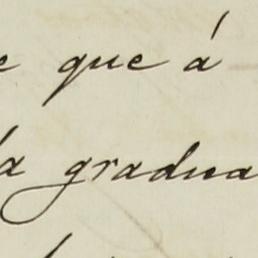 e que á
da gradua